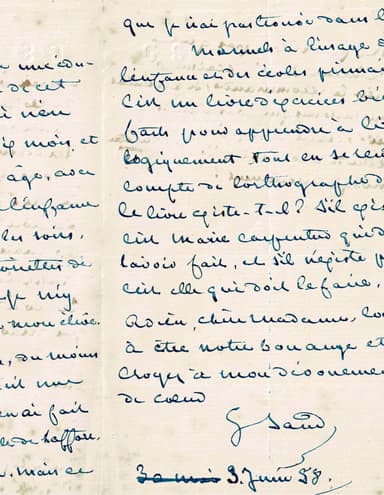 une edu-
de cet
rien
mois, et
age, avec
l'enfance
les soirs.
je n'y
mon élève.
, du moins
une
en ai fait
de Laffore.
. mais ce
que je n'ai pas trouvé dans l
manuels à l'usage d
l'enfance et des écoles primai
C'est un livre d'exercices bi
faits pour apprendre à li
logiquement tout en se ren
compte de l'orthographe. 
le livre existe-t-il? S'il exis
c'est Marie Carpentier qui d
l'avoir fait, et s'il n'existe p
c'est elle qui doit le faire.
Adieu, chère madame, co
à être notre bon ange et
croyez à mon dévouement
de cœur
G Sand
30 mai 3. Juin 58.